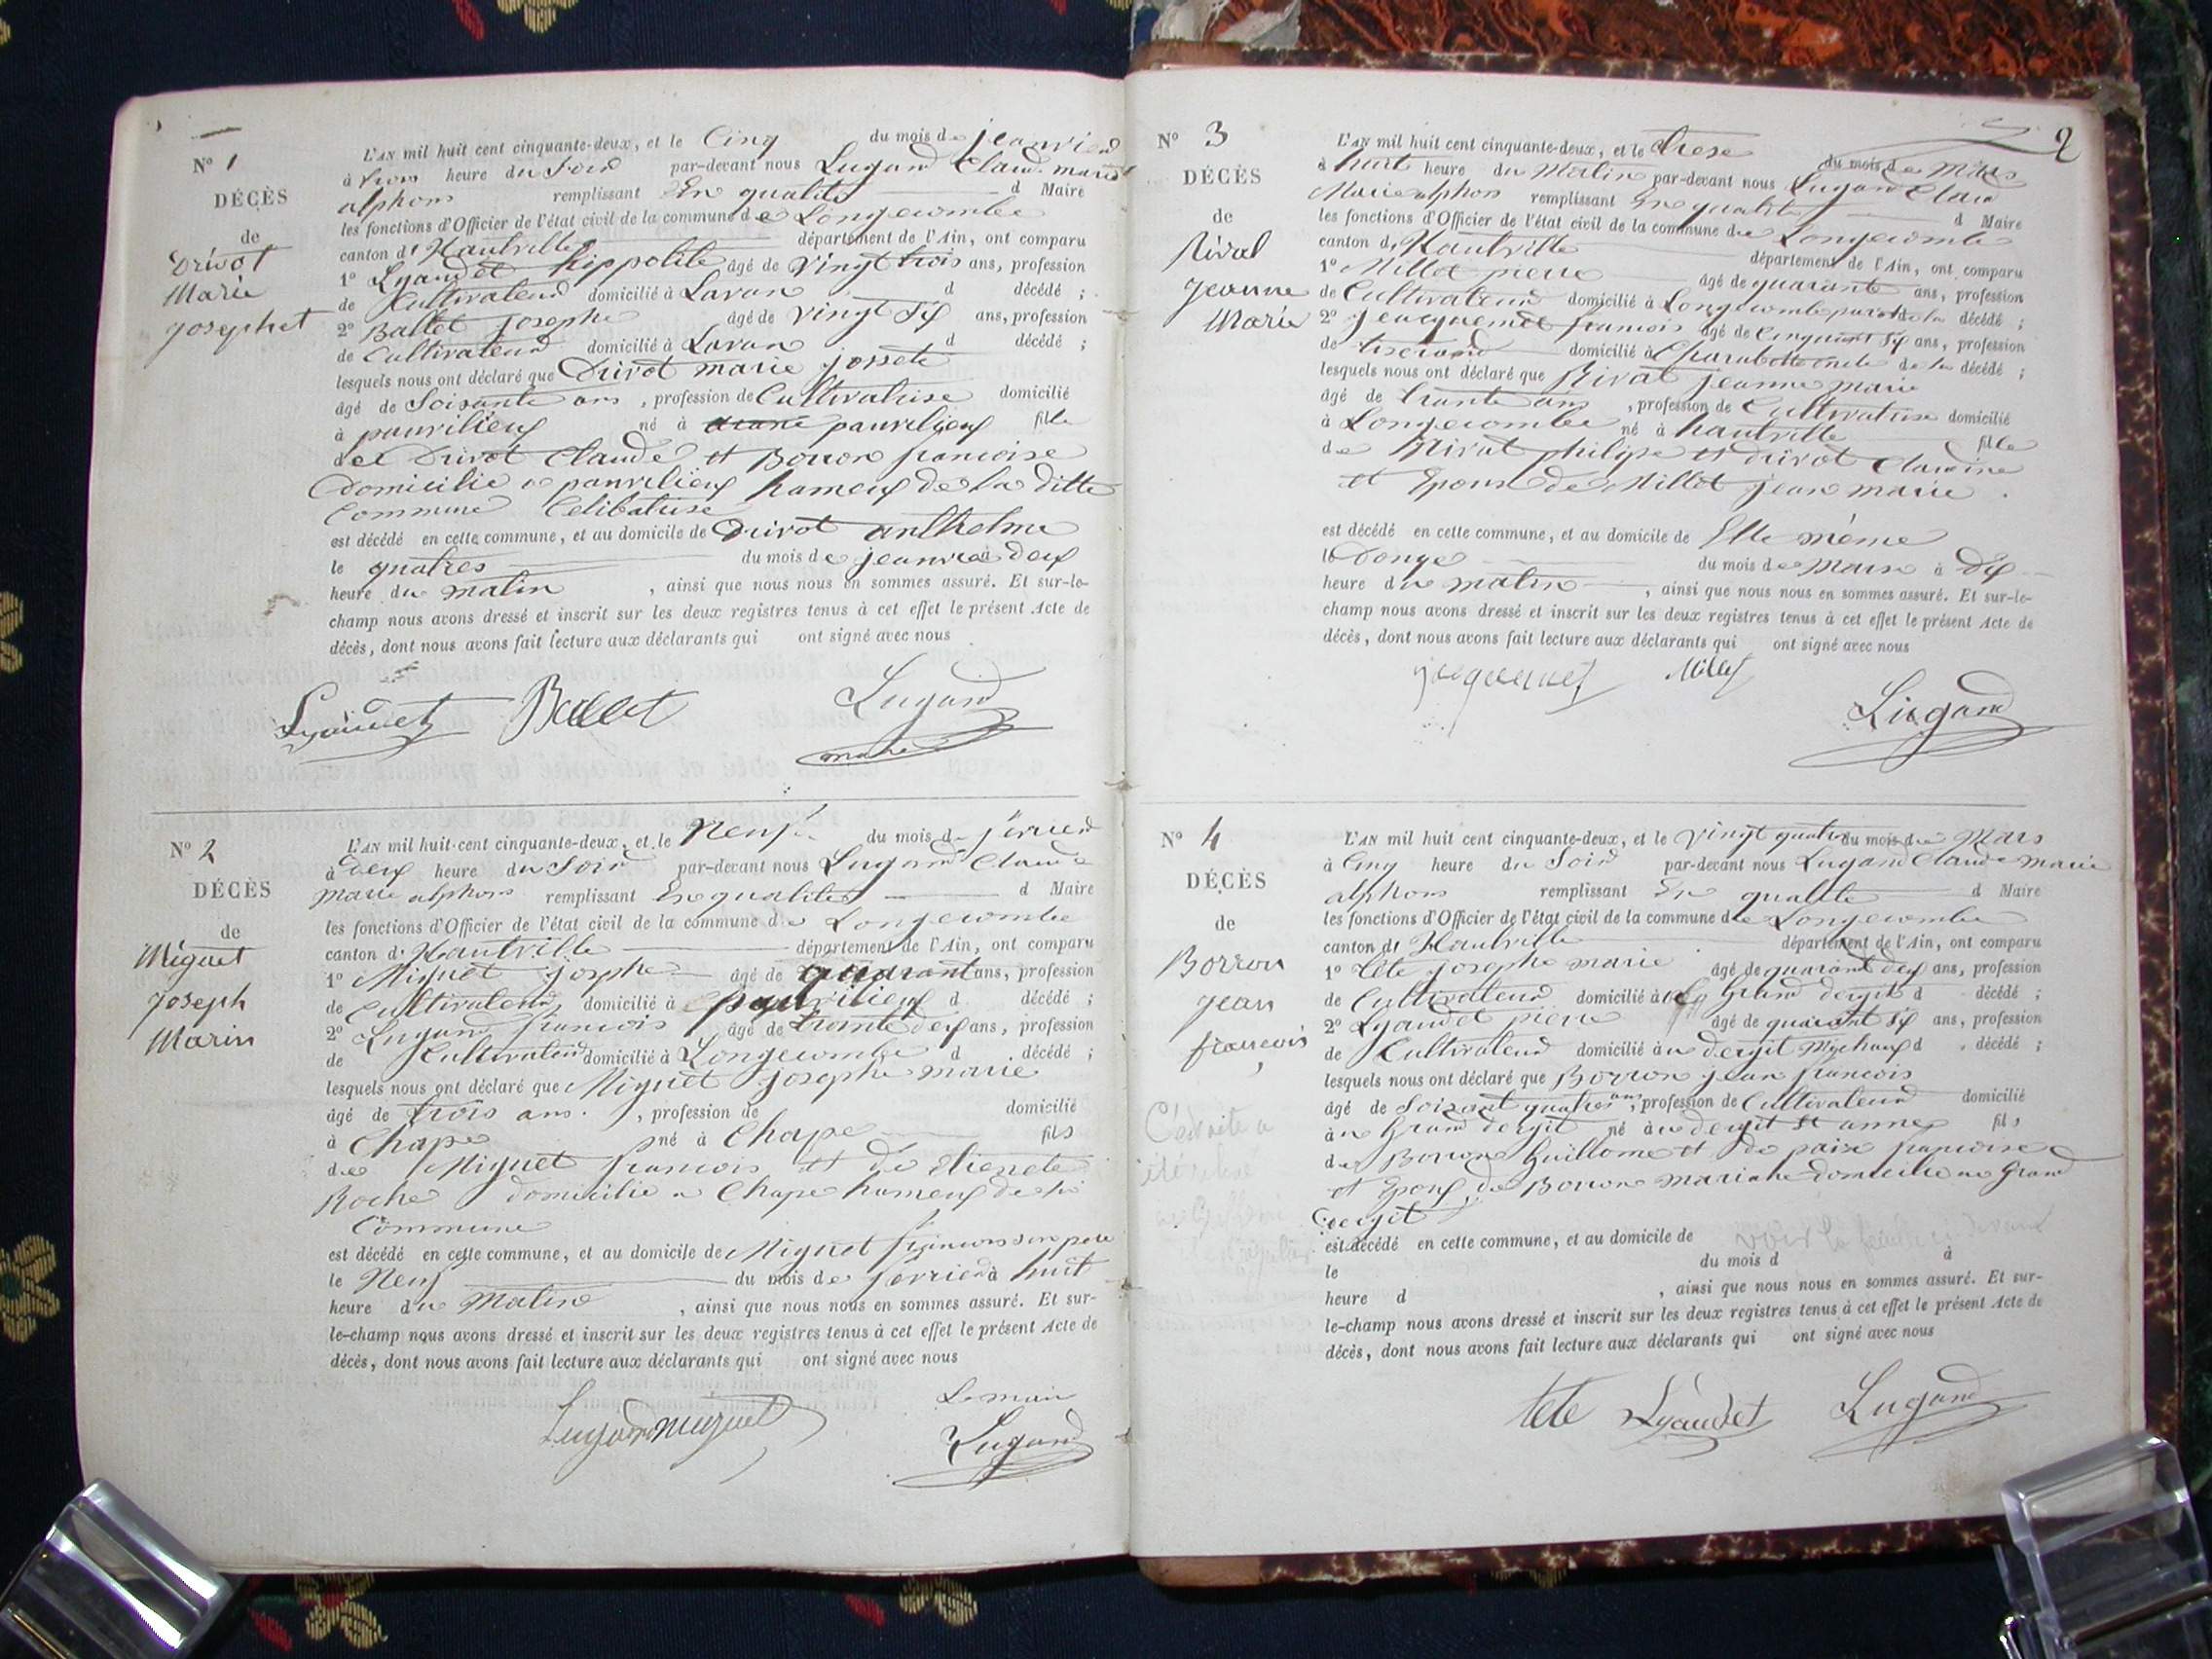 N° 1
DÉCÈS
de
Drivot
Marie
josephet
L'AN mil huit cent cinquante-deux, et le Cinq du mois de jeanvier
à trois heure du Soir par-devant nous Lugand Claud. marie
alphons remplissant En qualité d Maire
les fonctions d'Officier de l'état civil de la commune de Longecombe
canton d' Hautville département de l'Ain, ont comparu
1° Lyaudet hippolite âgé de Vingt trois ans, profession
de Cultivateur domicilié à Lavan d décédé ;
2° Ballet Josephe âgé de Vingt Six ans, profession
de Cultivateur domicilié à Lavan d décédé ;
lesquels nous ont déclaré que Drivot marie jossete
âgé de Soisante ans , profession de Cultivatrise domicilié
à né à fille
de Drivot Claude et Borron francoise
Domicilie a hameux de la ditte
Commune Celibatrise
est décédé en cette commune, et au domicile de Drivot anthelme
le quatres du mois de jeanvier à deux
heure du matin , ainsi que nous nous en sommes assuré. Et sur-le-
champ nous avons dressé et inscrit sur les deux registres tenus à cet effet le présent Acte de
décès, dont nous avons fait lecture aux déclarants qui ont signé avec nous
Lyaudet Ballet Lugand
maire
N° 2
DÉCÈS
de
Miguet
Joseph
Marin
L'AN mil huit cent cinquante-deux, et le Neuf du mois d fevrier
à deux heure du Soir par-devant nous Lugand Claude
marie alphons remplissant En qualité d Maire
les fonctions d'Officier de l'état civil de la commune de Longecombe
canton d' Hautville département de l'Ain, ont comparu
1° Miguet josephe âgé de quarant ans, profession
de Cultivateur domicilié à d décédé ;
2° Lugand francois âgé de trante deux ans, profession
de Cultivateur domicilié à Longecombe d décédé ;
lesquels nous ont déclaré que Miguet josephe marie
âgé de trois ans. , profession de domicilié
à Chape né à Chape fils
de Miguet francois et de Etienete
Roche domicilie a Chape hameux de
Commune
est décédé en cette commune, et au domicile de Miguet francois son pere
le Neuf du mois de fevrier à huit
heure du Matin , ainsi que nous nous en sommes assuré. Et sur-
le-champ nous avons dressé et inscrit sur les deux registres tenus à cet effet le présent Acte de
décès, dont nous avons fait lecture aux déclarants qui ont signé avec nous
Lugand miguet Le maire
Lugand
2
N° 3
DÉCÈS
de
Rival
jeanne
Marie
L'AN mil huit cent cinquante-deux, et le trese du mois de Mars
à huit heure du Matin par-devant nous Lugand Claud
Marie alphons remplissant En qualité d Maire
les fonctions d'Officier de l'état civil de la commune de Longecombe
canton d' Hautville département de l'Ain, ont comparu
1° Millet pierre âgé de quarante ans, profession
de Cultivateur domicilié à Longecombe décédé ;
2° francois âgé de Cinquant Six ans, profession
de tiserand domicilié à de la décédé ;
lesquels nous ont déclaré que Rivat jeanne marie
âgé de trante ans , profession de Cultivatrise domicilié
à Longecombe né à hautville fille
de Rivat philipe et drivot Claudine
et Epouse de Millet jean marie .
est décédé en cette commune, et au domicile de Elle même
le Donze du mois de Mars à dix
heure du matin , ainsi que nous nous en sommes assuré. Et sur-le-
champ nous avons dressé et inscrit sur les deux registres tenus à cet effet le présent Acte de
décès, dont nous avons fait lecture aux déclarants qui ont signé avec nous
Millet
Lugand
N° 4
DÉCÈS
de
Borron
jean
francois
L'AN mil huit cent cinquante-deux, et le Vingt quatre du mois de Mars
à Cinq heure du Soir par-devant nous Lugand Claude marie
alphons remplissant En qualité d Maire
les fonctions d'Officier de l'état civil de la commune de Longecombe
canton d' Hautville département de l'Ain, ont comparu
1° tete josephe marie âgé de quarant deux ans, profession
de Cultivateur domicilié à Grand dergit d décédé ;
2° Lyaudet pierre âgé de quarant Six ans, profession
de Cultivateur domicilié à u dergit Michaux d décédé ;
lesquels nous ont déclaré que Borron jean francois
âgé de Soisant quatres ans, profession de Cultivateur domicilié
à u Grand dergit né à u dergit St anne fils
de Borron Guillome et de paise francoise
et Epoux de Borron mariane domicilie au Grand
dergit
est décédé en cette commune, et au domicile de
le du mois d à
heure d , ainsi que nous nous en sommes assuré. Et sur-
le-champ nous avons dressé et inscrit sur les deux registres tenus à cet effet le présent Acte de
décès, dont nous avons fait lecture aux déclarants qui ont signé avec nous
tete Lyaudet Lugand